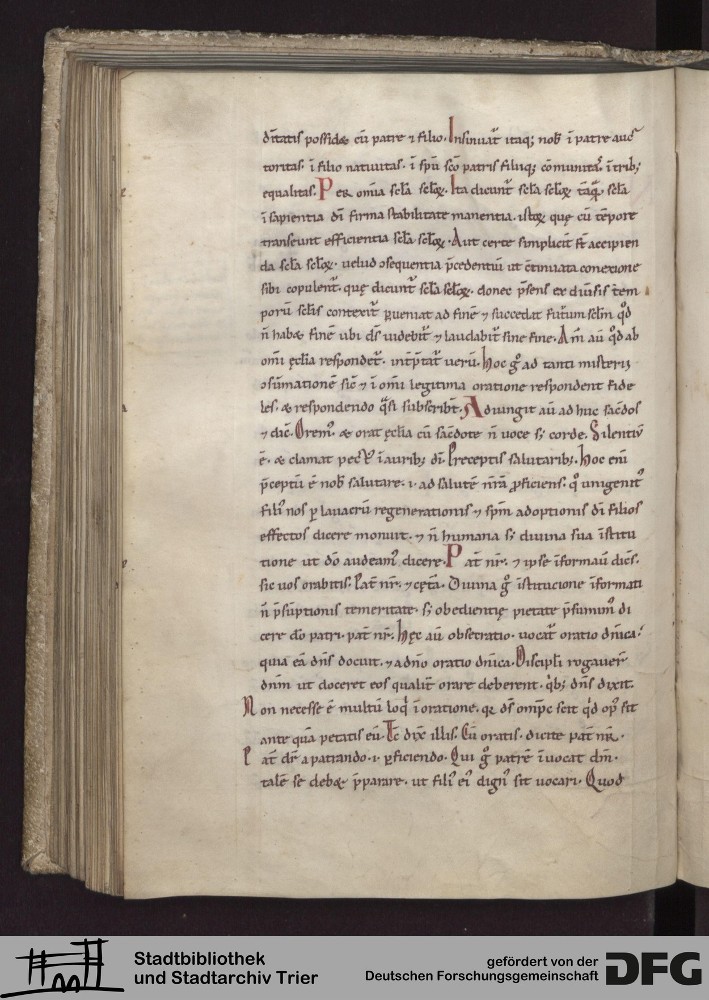 d̄itatis possidæ cū patre ⁊ filio. Insinuat᷑ itaq; nob̄ ī patre auc
toritas. ī filio natiuitas. ī sp̄u sc̄o patris filiiq; cōmunitas. ī trib;
equalitas. Per om̄ia sc̄la sc̄loꝝ. Ita dicunt᷑ sc̄la sc̄loꝝ sc̄la
ī sapientia dī firma stabilitate manentia. istoꝝ quę cū tēpore
transeunt efficientia sc̄la sc̄loꝝ. Aut certe simplicit̄ st̄ accipien
da sc̄la sc̄loꝝ. uelud ɔsequentia p̄cedentiū ut ɔtinuata conexione
sibi copulent᷑. quę dicunt᷑ sc̄la sc̄loꝝ. donec p̄sens ex diūsis tem
porū sc̄lis contexit᷑ ꝑueniat ad finē ⁊ succedat futurum sc̄lm qd̄
n̄ habæ finē ubi ds̄ uidebit᷑ ⁊ laudabit᷑ sine fine. Am̄ aū qd̄ ab
om̄i ęcl̄ia respondet᷑. int̄p̄tat᷑ uerū. Hoc g̊ ad tanti misterii
ɔsūmationē sic̄ ⁊ ī om̄i legitima oratione respondent fide
les. æ respondendo q̄si subscribt̄. Adiungit aū ad huc sac̄dos
⁊ dic̄. Orem᷒. æ orat ęcl̄ia cū sac̄dote n̄ uoce s; corde. Silentiū
ē. æ clamat pect᷒ ī aurib; dī. Preceptis salutarib;. Hoc enī
p̄ceptū ē nob̄ salutare. i. ad salutē nr̄ā ꝓficiens. qͦ unigenit᷒
fili᷒ nos ꝑ lauacrū regenerationis ⁊ sp̄m adoptionis dī filios
effectos dicere monuit. ⁊ n̄ humana s; diuina sua īstitu
tione ut dō audeam᷒ dicere. Pat̄ nr̄. ⁊ ipse īformauit dicēs.
sic uos orabitis. Pat̄ nr̄. ⁊ cęt̄a. Diuina g̊ īstitucione īformati
n̄ p̄sūptionis temeritate. s; obedientię pietate p̄sumim᷒ di
cere dō patri. pat̄ nr̄. Hęc aū obsecratio. uocat᷑ oratio dn̄ica.
quia eā dn̄s docuit. ⁊ a dn̄o oratio dn̄ica. Discipl̄i rogauer̄
dn̄m ut doceret eos qualit̄ orare deberent. qͥb; dn̄s dixit.
Non necesse ē multū loqͥ ī oratione. qꝛ ds̄ omp̄c scit qd̄ op᷒ sit
ante quā petatis eū. Tc̄ dix̄ illis. Cū oratis. dicite pat̄ nr̄.
Pat̄ dr̄ a patrando. i. ꝑficiendo. Qui g̊ patrē īuocat dm̄.
talē se debæ p̄parare. ut fili᷒ ei᷒ dign᷒ sit uocari. Quod
Stadtbibliothek
und Stadtarchiv Trier
gefördert von der
Deutschen Forschungsgemeinschaft
DFG